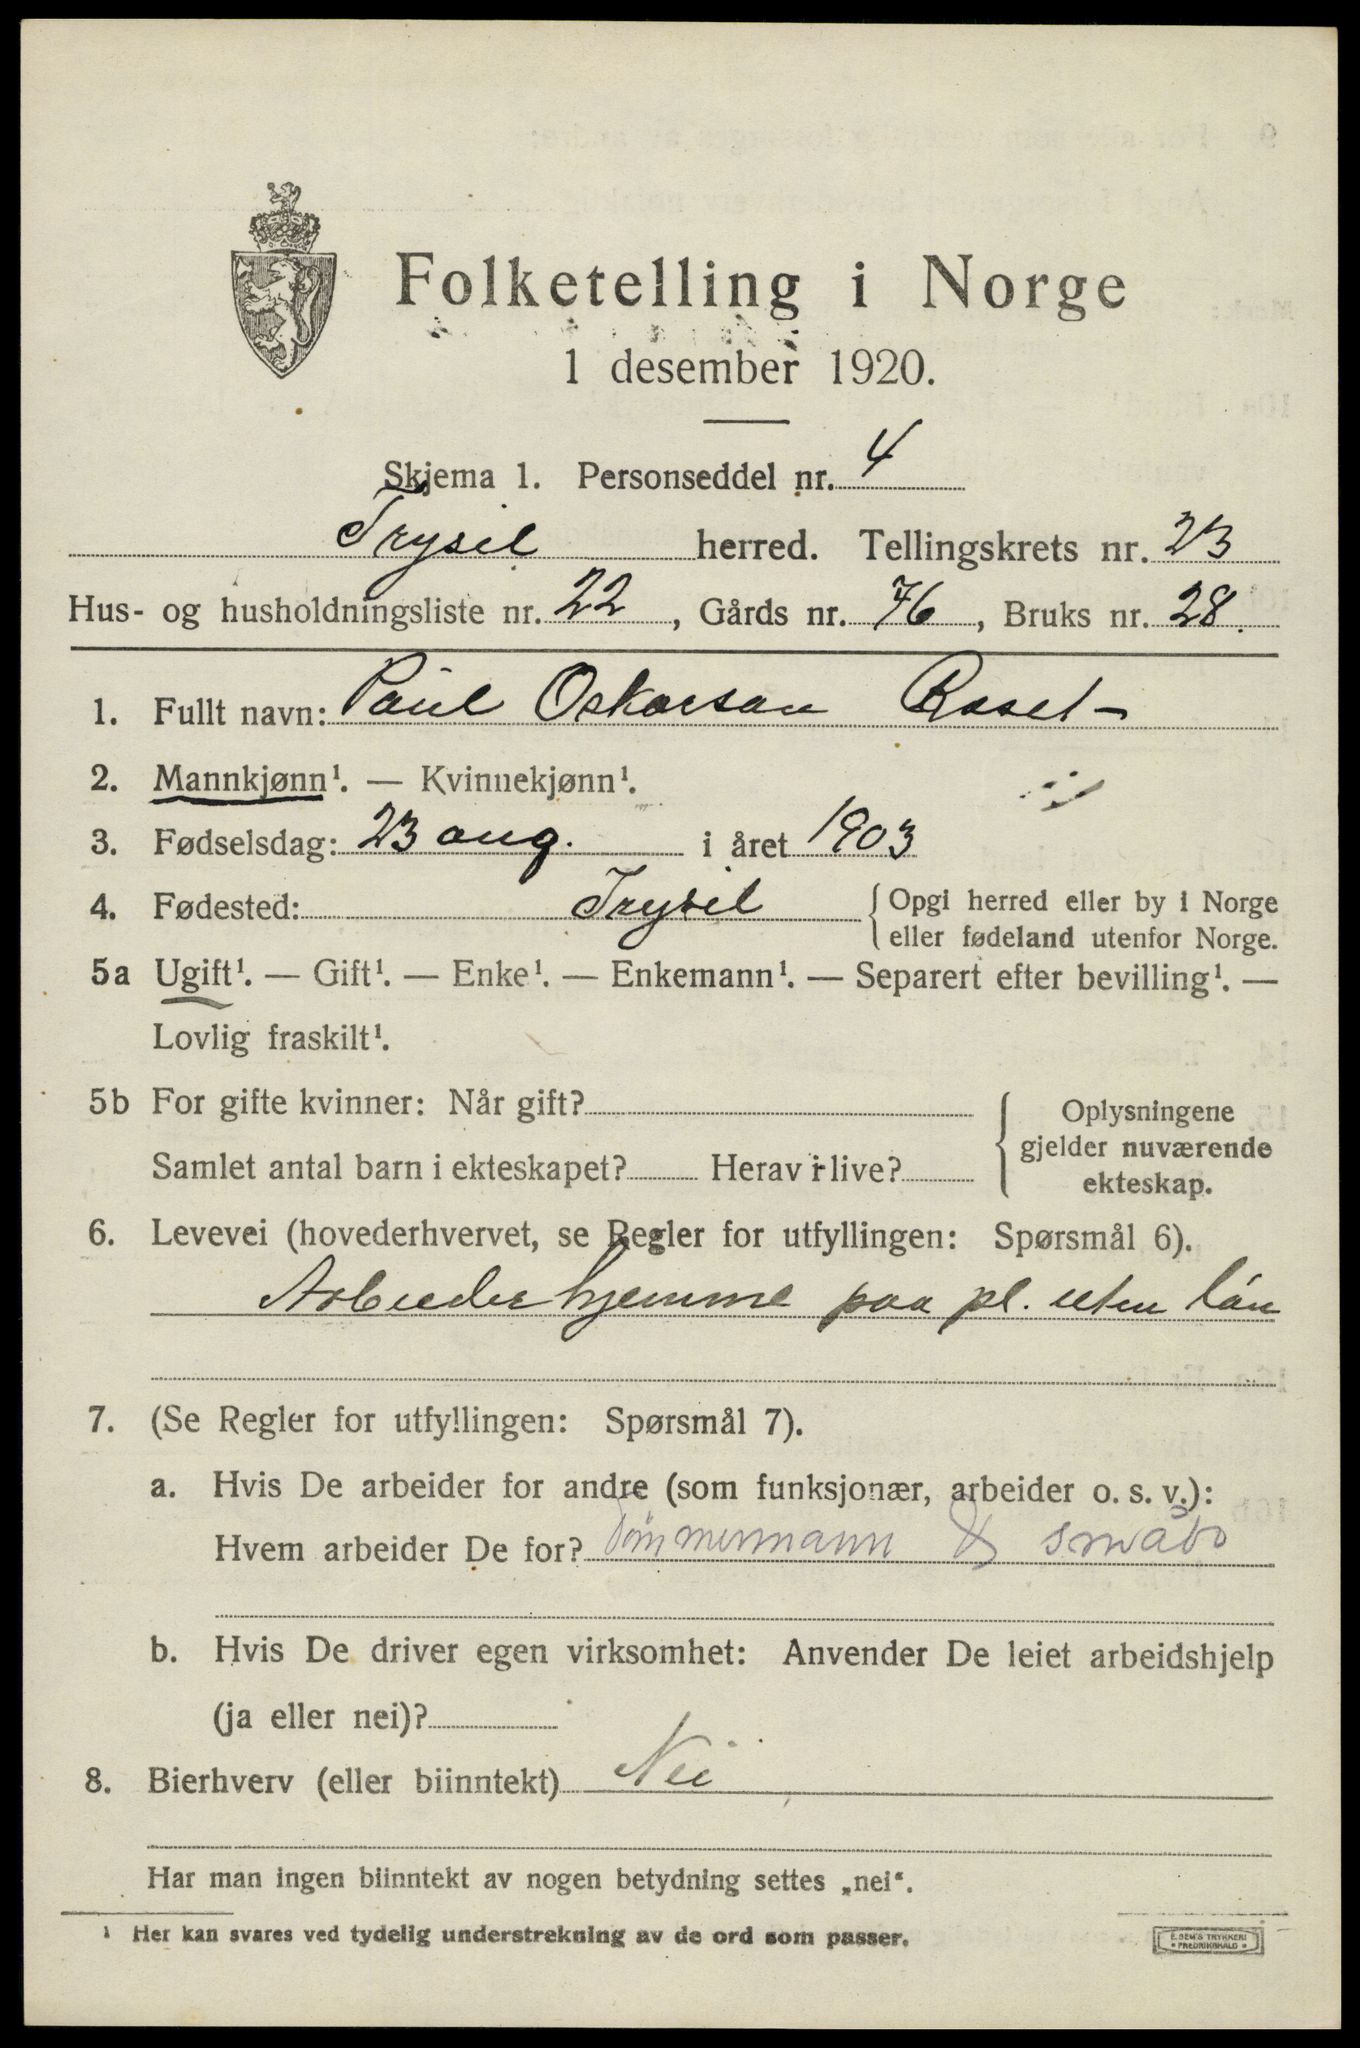 Folketelling i Norge
1 desember 1920.
Skjema 1. Personseddel nr. 4
Trysil herred. Tellingskrets nr. 23
Hus- og husholdningsliste nr. 22, Gårds nr. 76, Bruks nr. 28.
1. Fullt navn: Paul Oskarsan
2. Mannkjønn¹. — Kvinnekjønn¹.
3. Fødselsdag: 23 aug. i året 1903
4. Fødested: Trysil { Opgi herred eller by i Norge
eller fødeland utenfor Norge.
5a Ugift¹. — Gift¹. — Enke¹. — Enkemann¹. — Separert efter bevilling¹. —
Lovlig fraskilt¹.
5b For gifte kvinner: Når gift?
Samlet antal barn i ekteskapet? Herav i live?
{ Oplysningene
gjelder nuværende
ekteskap.
6. Levevei (hovederhvervet, se Regler for utfyllingen: Spørsmål 6).
Arbeider hjemme paa pl. uten lön
7. (Se Regler for utfyllingen: Spørsmål 7).
a. Hvis De arbeider for andre (som funksjonær, arbeider o. s. v.):
Hvem arbeider De for? Tömmermann & småbr
b. Hvis De driver egen virksomhet: Anvender De leiet arbeidshjelp
(ja eller nei)?
8. Bierhverv (eller biinntekt) Nei
Har man ingen biinntekt av nogen betydning settes „nei“.
¹ Her kan svares ved tydelig understrekning av de ord som passer.
E. SEM'S TRYKKERI
FREDRIKSHALD